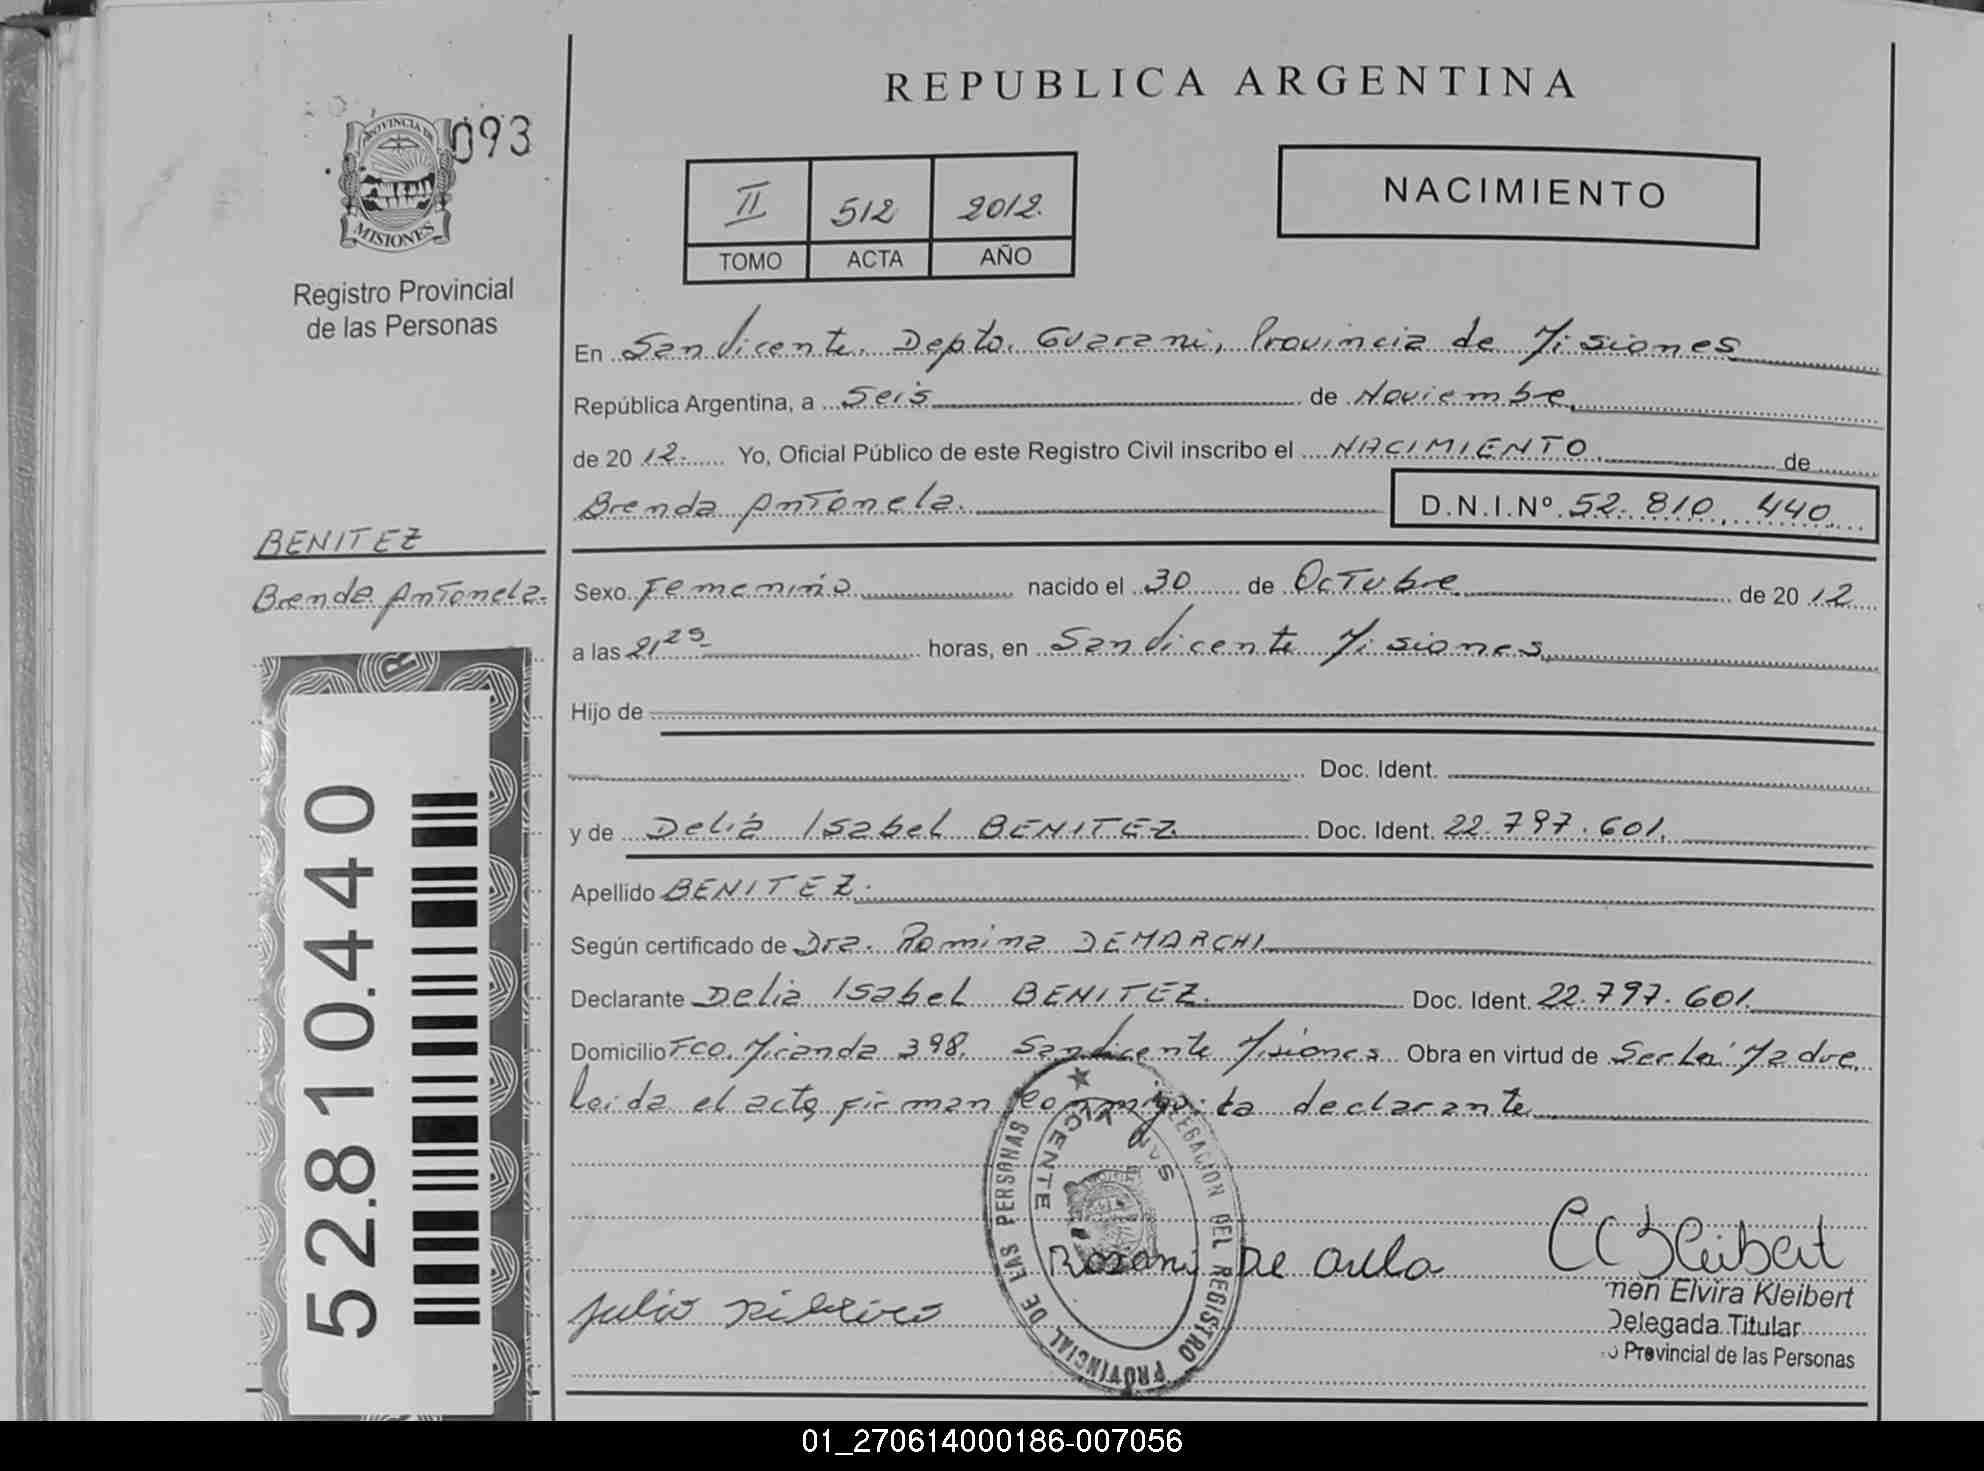 REPUBLICA ARGENTINA
093
PROVINCIA DE
MISIONES
Registro Provincial
de las Personas
II 512 2012.
TOMO ACTA AÑO
NACIMIENTO
En San Vicente. Depto. Guarani, Provincia de Misiones
República Argentina, a Seis de Noviembre
de 20 12. Yo, Oficial Público de este Registro Civil inscribo el NACIMIENTO. de
Brenda Antonela. D.N.I.Nº 52.810.440
BENITEZ
Brenda Antonela.
Sexo Femenino nacido el 30 de Octubre de 20 12
a las 21 25 horas, en San Vicente Misiones
Hijo de
Doc. Ident.
y de Delia Isabel BENITEZ Doc. Ident. 22.797.601.
Apellido BENITEZ.
Según certificado de Dra. Romina DEMARCHI
Declarante Delia Isabel BENITEZ. Doc. Ident. 22.797.601.
Domicilio Fco. Miranda 398. San Vicente Misiones Obra en virtud de Ser La Madre.
Leida el acta firman conmigo la declarante
52.810.440
DELEGACION DEL REGISTRO PROVINCIAL DE LAS PERSONAS
SAN VICENTE
Rosani De Aula
Julio Ribeiro
CCKleibert
men Elvira Kleibert
Delegada Titular
o Provincial de las Personas
01_270614000186-007056